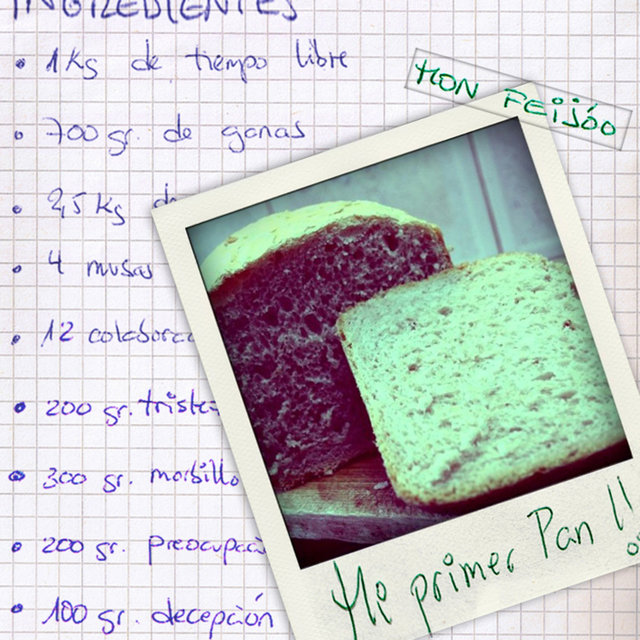 INGREDIENTES
1Kg de tiempo libre
700 gr. de ganas
2,5 Kg de
4 musas
12 colabora
200 gr. triste
300 gr. morbillo
200 gr. preocupaci
100 gr. decepción
MON FEIJÓO
Mi primer Pan !!